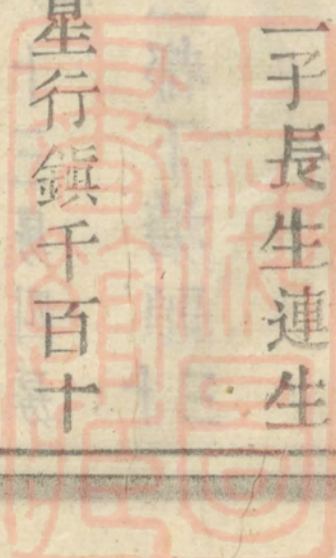 一子長生連生
星行鎮千百十